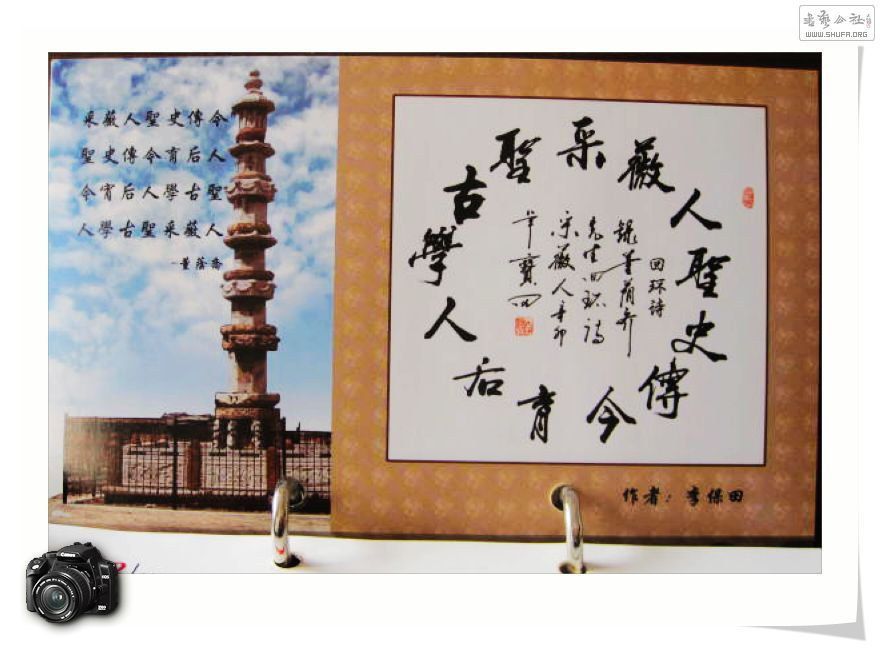 書藝公社
WWW.SHUFA.ORG
采薇人聖史傳今
聖史傳今育后人
今育后人學古聖
人學古聖采薇人
-董蔭
采薇人聖史傳今育后人學古聖
回环诗
錄董荫
先生回环诗
采薇人辛卯
作者：李保田
Canon
EOS